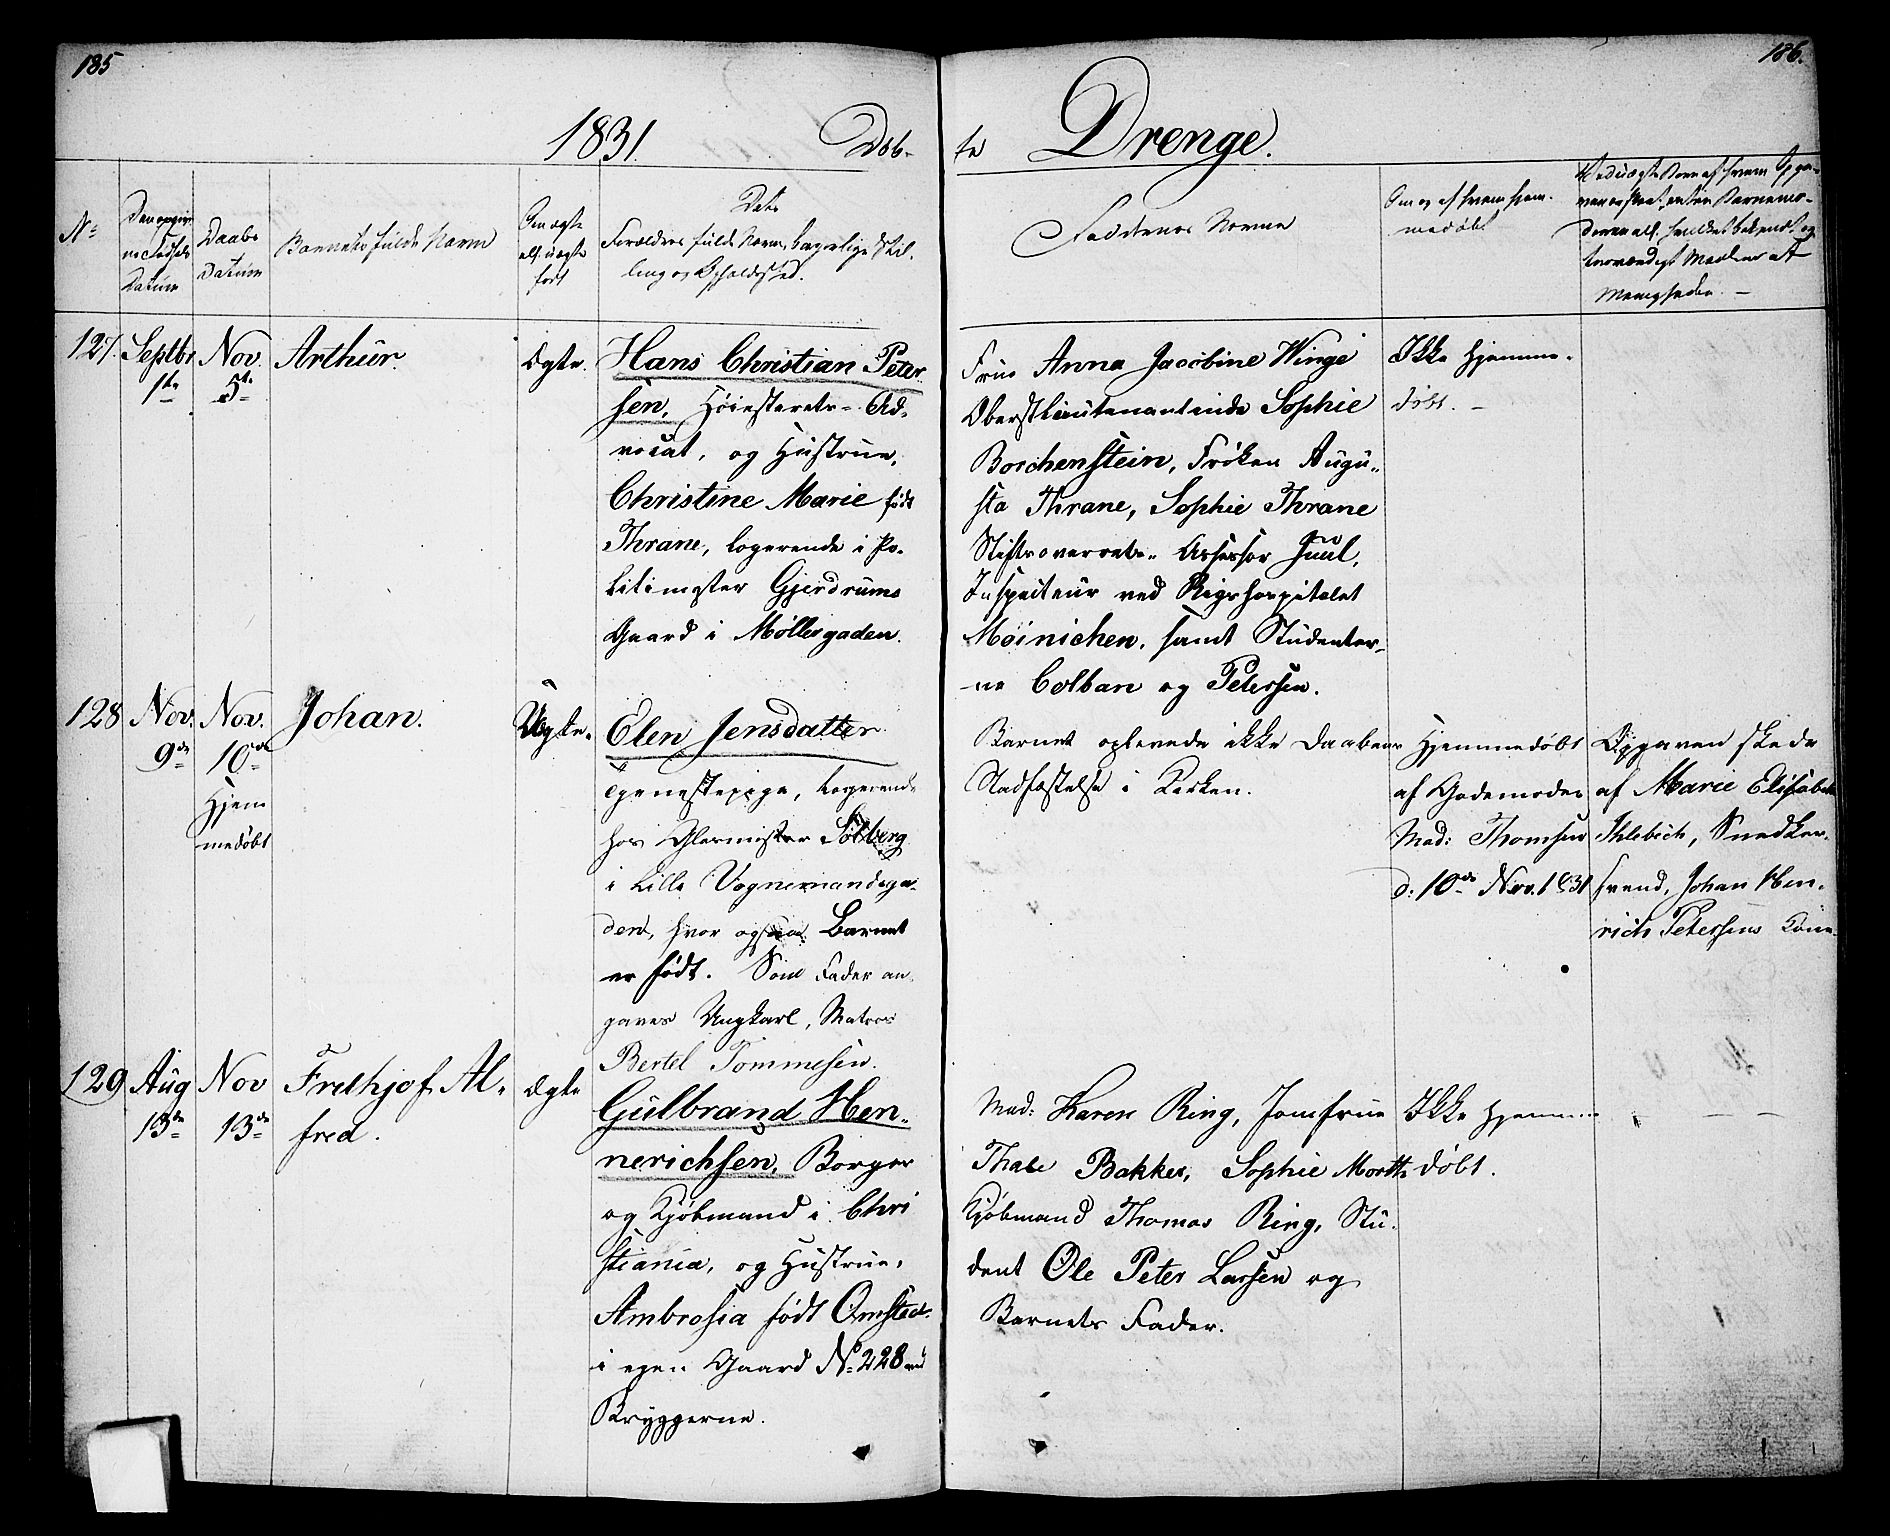 185
186.
1831. Døb-
te Drenge.
No
Den opgiv
ne Fødsels
Datum
Daabs
Datum
Barnets fulde Navn
Om ægte
ell. uægte
født
Dets
Forældres fulde Navn, borgerlige Stil-
ling og Opholdssted.
Faddernes Navne
Om og af hvem hjem-
medøbt
Ved uægte Børn af hvem Opga-
Menigheden. –
127. Septbr
1ste
Nov.
5te
Arthur.
Ægte.
Hans Christian Peter-
sen, Høiesterets- Ad-
vocat, og Hustrue,
Christine Marie født
Thrane, logerende i Po-
litimester Gjerdrums
Gaard i Møllergaden.
Frue Anna Jacobine Winge
Oberstlieutenantinde Sophie
Borchenstein, Frøken Augu-
sta Thrane, Sophie Thrane
Stiftsoverrets- Assessor Juul,
Inspecteur ved Rigshospitalet
Møinichen, samt Studenter-
ne Colban og Petersen.
Ikke hjemme-
døbt. –
128 Nov.
9de
Nov.
10de
Hjem
medøbt
Johan.
Uægte.
Elen Jensdatter
Tjenestepige, logerende
hos Glarmester Solberg
i Lille Vognmandsga-
den, hvor ogsaa Barnet
er født. Som Fader an-
gaves Ungkarl, Matros
Bertel Tommesen.
Barnet oplevede ikke Daabens
Stadfæstelse i Kirken.
Hjemmedøbt
af Gjodemoder
Mad: Thomsen
d: 10de Nov. 1831
Opgaven skede
af Marie Elisabeth
Ihlebech, Snedker-
svend, Johan Hen-
rich Petersens Kone.
129 Aug
13de
Nov
13de
Frethjof Al-
fred.
Ægte
Gulbrand Hen-
nerichsen, Borger
og Kjøbmand i Chri
stiania, og Hustrue,
Ambrosia født Omsted.
i egen Gaard No 228 ved
Bryggerne.
Mad: Karen Ring, Jomfrue
Thale Bakker, Sophie Morth
Kjøbmand Thomas Ring, Stu-
dent Ole Peter Larsen og
Barnets Fader.
Ikke hjemme
døbt.